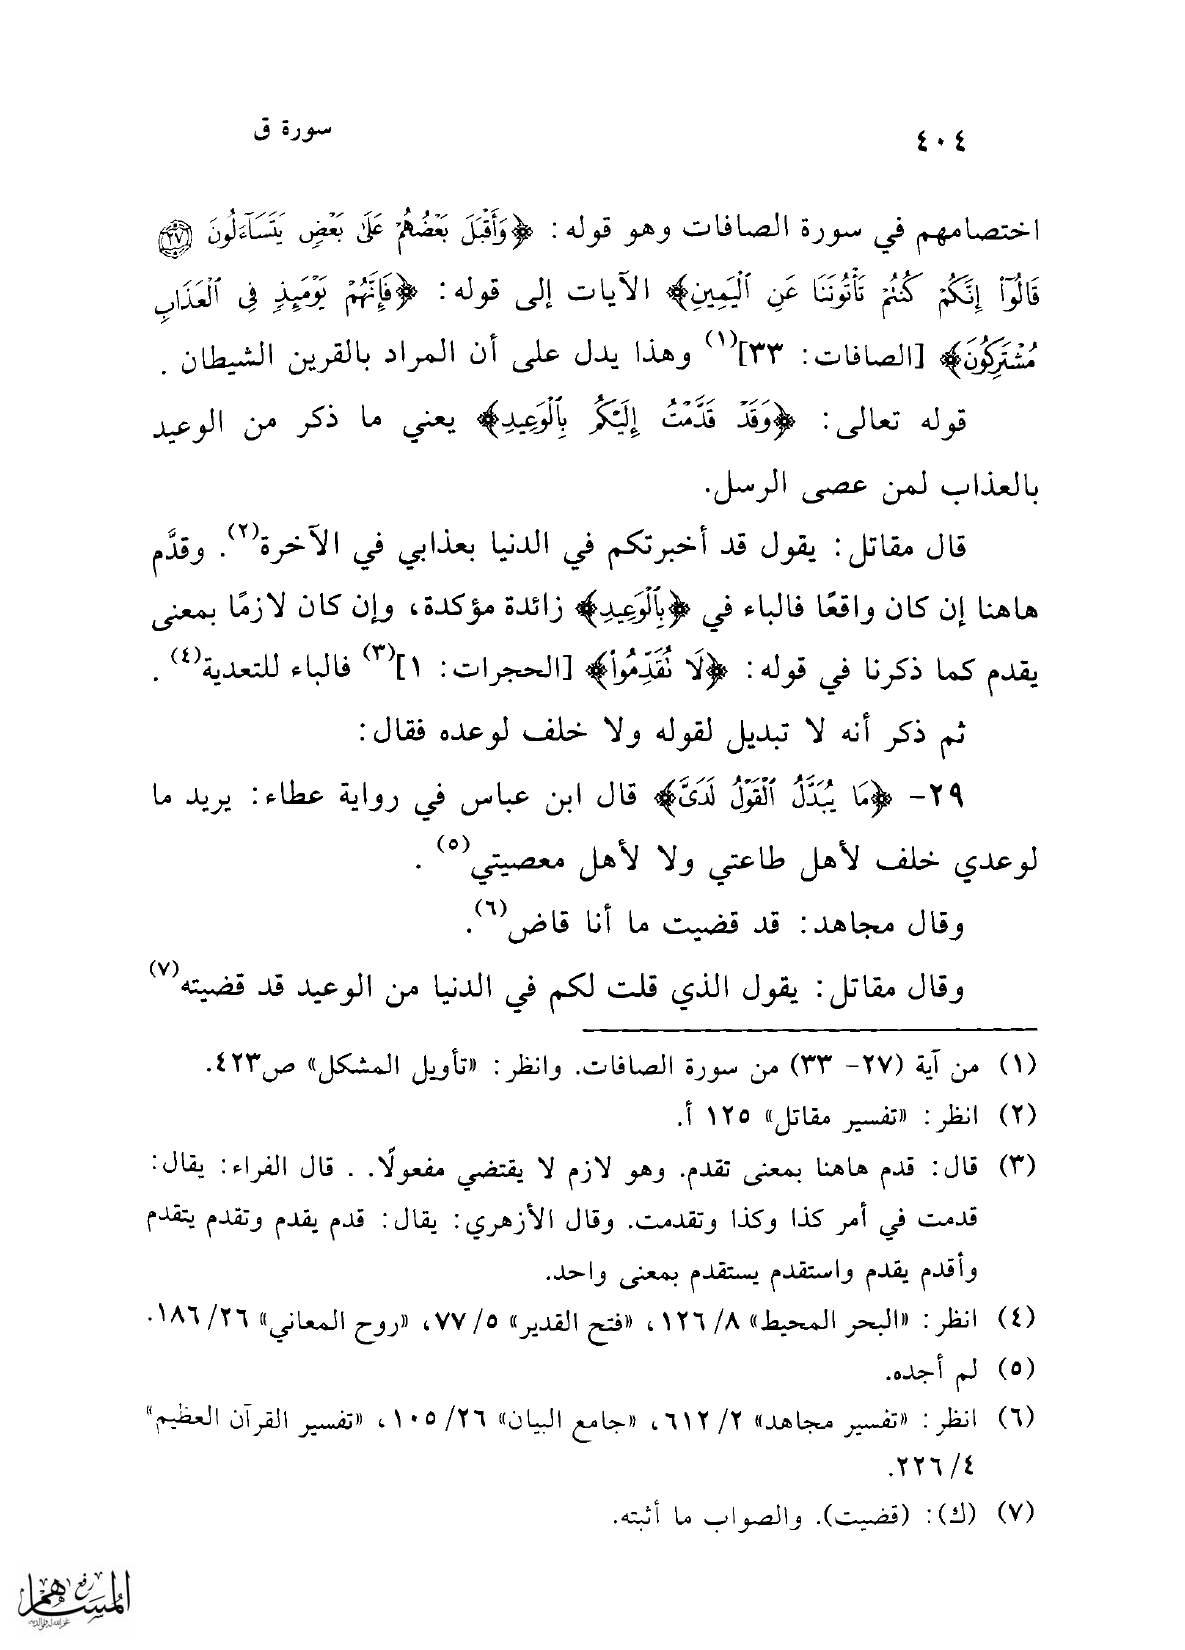 ٤٠٤ سورة ق
اختصامهم في سورة الصافات وهو قوله: ﴿وَأَقْبَلَ بَعْضُهُمْ عَلَىٰ بَعْضٍ يَتَسَآءَلُونَ ٢٧
قَالُوٓا۟ إِنَّكُمْ كُنتُمْ تَأْتُونَنَا عَنِ ٱلْيَمِينِ﴾ الآيات إلى قوله: ﴿فَإِنَّهُمْ يَوْمَئِذٍ فِى ٱلْعَذَابِ
مُشْتَرِكُونَ﴾ [الصافات: ٣٣](١) وهذا يدل على أن المراد بالقرين الشيطان .
قوله تعالى: ﴿وَقَدْ قَدَّمْتُ إِلَيْكُم بِٱلْوَعِيدِ﴾ يعني ما ذكر من الوعيد
بالعذاب لمن عصى الرسل.
قال مقاتل: يقول قد أخبرتكم في الدنيا بعذابي في الآخرة(٢). وقدَّم
هاهنا إن كان واقعًا فالباء في ﴿بِٱلْوَعِيدِ﴾ زائدة مؤكدة، وإن كان لازمًا بمعنى
يقدم كما ذكرنا في قوله: ﴿لَا تُقَدِّمُوا۟﴾ [الحجرات: ١](٣) فالباء للتعدية(٤) .
ثم ذكر أنه لا تبديل لقوله ولا خلف لوعده فقال:
٢٩- ﴿مَا يُبَدَّلُ ٱلْقَوْلُ لَدَىَّ﴾ قال ابن عباس في رواية عطاء: يريد ما
لوعدي خلف لأهل طاعتي ولا لأهل معصيتي(٥) .
وقال مجاهد: قد قضيت ما أنا قاض(٦).
وقال مقاتل: يقول الذي قلت لكم في الدنيا من الوعيد قد قضيته(٧)
(١) من آية (٢٧- ٣٣) من سورة الصافات. وانظر: «تأويل المشكل» ص٤٢٣.
(٢) انظر: «تفسير مقاتل» ١٢٥ أ.
(٣) قال: قدم هاهنا بمعنى تقدم. وهو لازم لا يقتضي مفعولًا. . قال الفراء: يقال:
قدمت في أمر كذا وكذا وتقدمت. وقال الأزهري: يقال: قدم يقدم وتقدم يتقدم
وأقدم يقدم واستقدم يستقدم بمعنى واحد.
(٤) انظر: «البحر المحيط» ٨/ ١٢٦، «فتح القدير» ٥/ ٧٧، «روح المعاني» ٢٦/ ١٨٦.
(٥) لم أجده.
(٦) انظر: «تفسير مجاهد» ٢/ ٦١٢، «جامع البيان» ٢٦/ ١٠٥، «تفسير القرآن العظيم»
٤/ ٢٢٦.
(٧) (ك): (قضيت). والصواب ما أثبته.